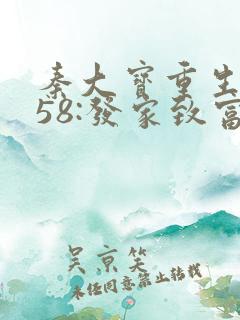 秦大寶重生
58:發家致富
吳京笑
未經同意禁止轉載